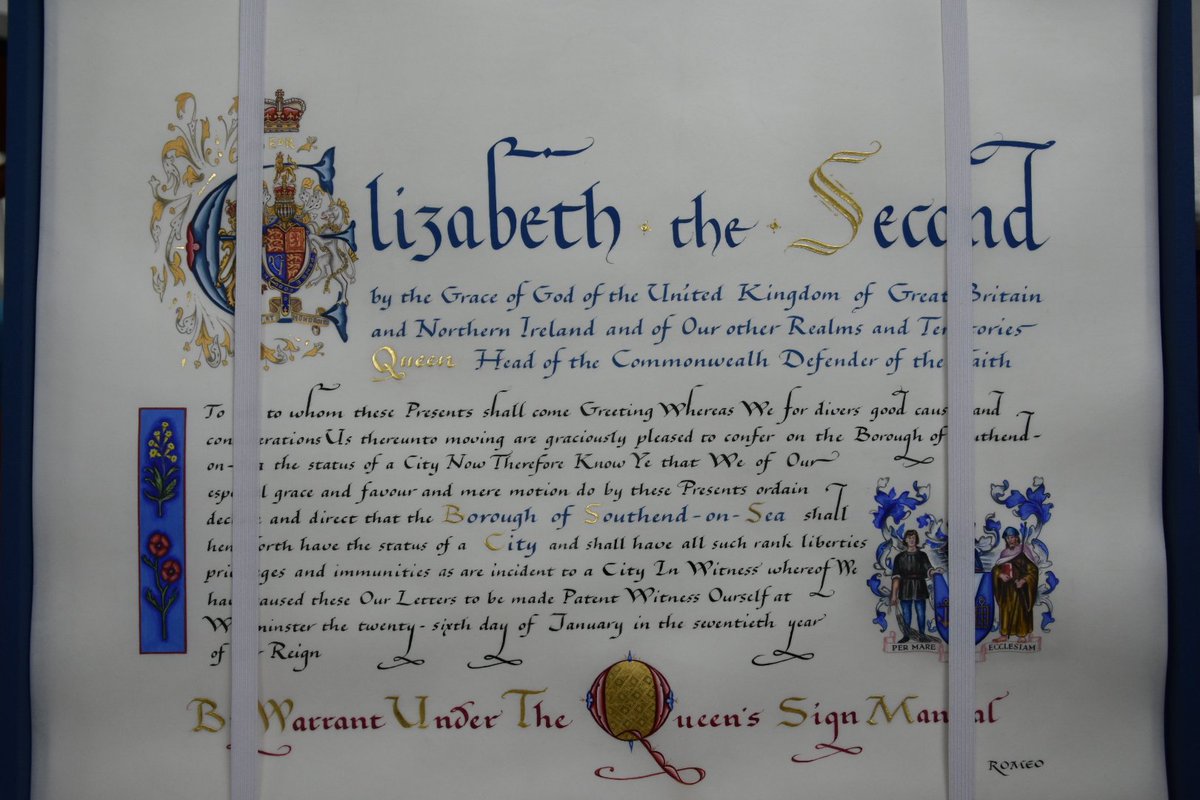 Elizabeth the Second
by the Grace of God of the United Kingdom of Great Britain
and Northern Ireland and of Our other Realms and Territories
Queen Head of the Commonwealth Defender of the Faith
To to whom these Presents shall come Greeting Whereas We for divers good causes and
considerations Us thereunto moving are graciously pleased to confer on the Borough of Southend-
on-Sea the status of a City Now Therefore Know Ye that We of Our
especial grace and favour and mere motion do by these Presents ordain
declare and direct that the Borough of Southend-on-Sea shall
henceforth have the status of a City and shall have all such rank liberties
privileges and immunities as are incident to a City In Witness whereof We
have caused these Our Letters to be made Patent Witness Ourself at
Westminster the twenty-sixth day of January in the seventieth year
of Our Reign
PER MARE ECCLESIAM
By Warrant Under The Queen's Sign Manual
ROMEO